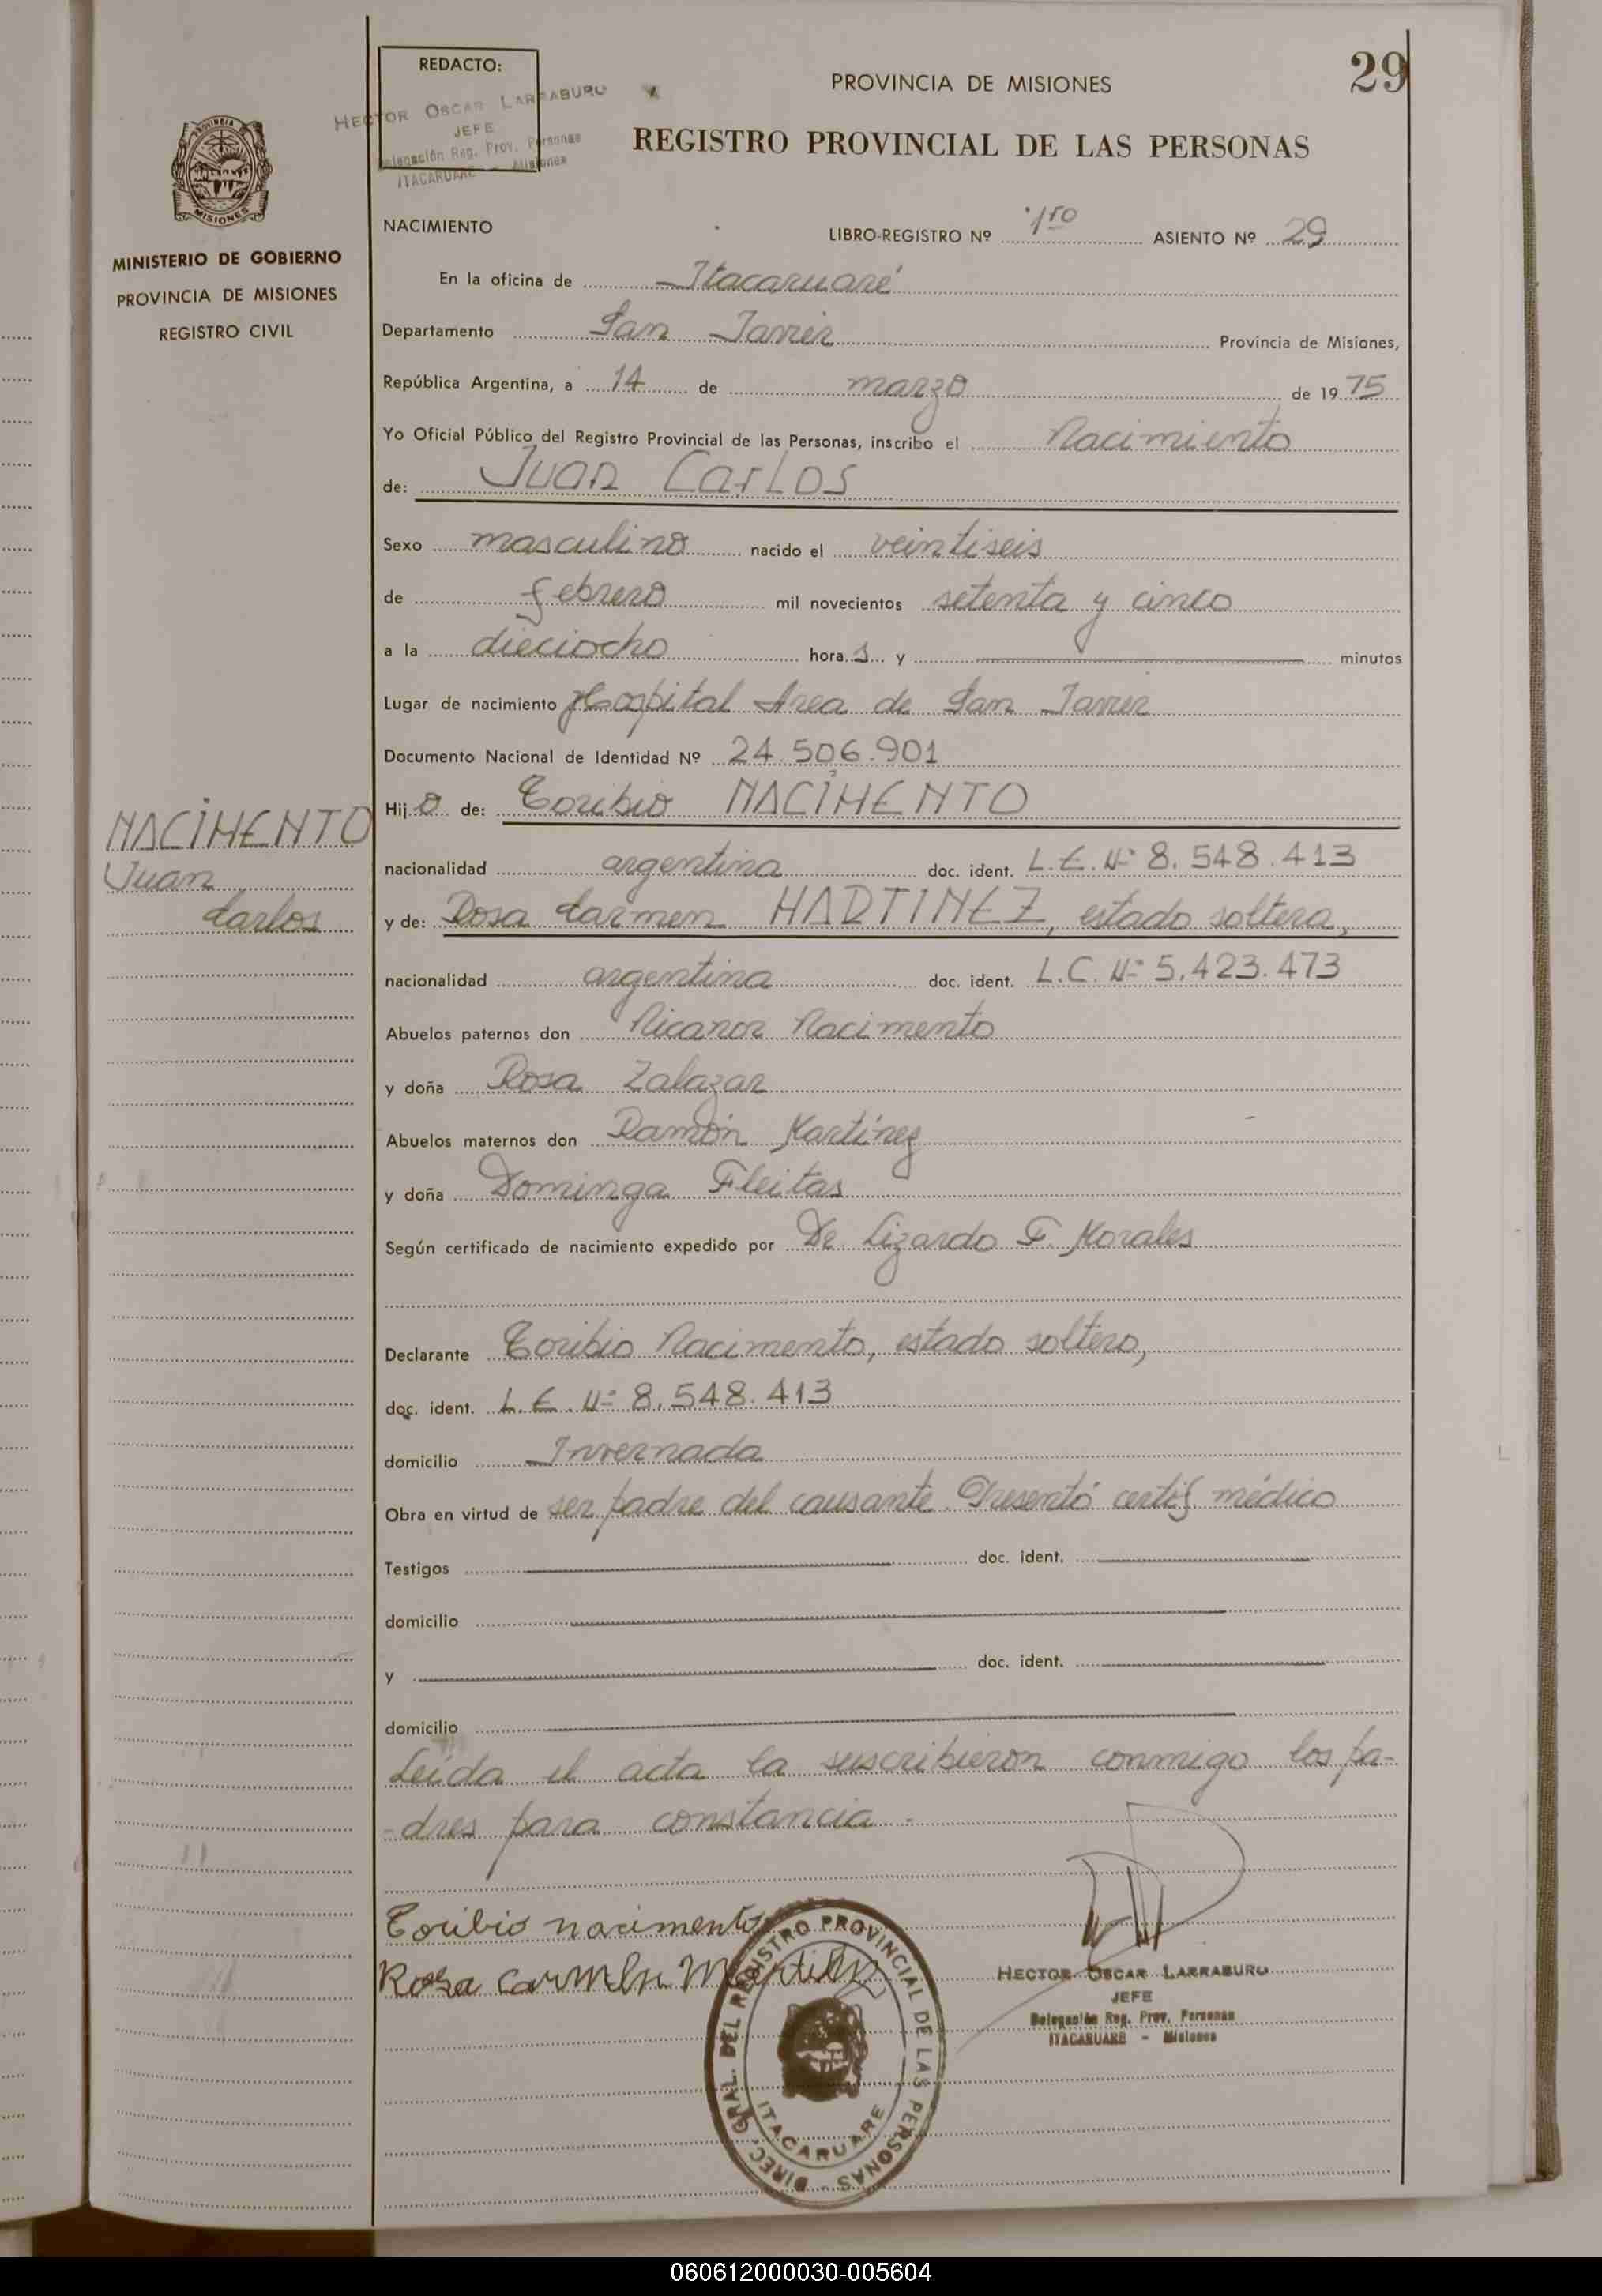 29
REDACTO:
HECTOR OSCAR LARRABURU
JEFE
Delegación Reg. Prov. Personas
ITACARUARE - Misiones
PROVINCIA DE MISIONES
REGISTRO PROVINCIAL DE LAS PERSONAS
PROVINCIA
MISIONES
MINISTERIO DE GOBIERNO
PROVINCIA DE MISIONES
REGISTRO CIVIL
NACIMIENTO
LIBRO-REGISTRO Nº 1ro ASIENTO Nº 29
En la oficina de Itacaruaré
Departamento San Javier Provincia de Misiones,
República Argentina, a 14 de marzo de 1975
Yo Oficial Público del Registro Provincial de las Personas, inscribo el Nacimiento
de: JUAN CARLOS
Sexo masculino nacido el veintiseis
de febrero mil novecientos setenta y cinco
a la dieciocho horas y minutos
Lugar de nacimiento Hospital Area de San Javier
Documento Nacional de Identidad Nº 24.506.901
Hijo de: Toribio NACIMENTO
nacionalidad argentina doc. ident. L.E.Nº 8.548.413
y de: Rosa Carmen MARTINEZ, estado soltera,
nacionalidad argentina doc. ident. L.C. Nº 5.423.473
Abuelos paternos don Nicanor Nacimento
y doña Rosa Zalazar
Abuelos maternos don Ramón Martínez
y doña Dominga Fleitas
Según certificado de nacimiento expedido por Dr. Lizardo F. Morales
Declarante Toribio Nacimento, estado soltero,
doc. ident. L.E.Nº 8.548.413
domicilio Invernada
Obra en virtud de ser padre del causante. Presentó certif médico
Testigos doc. ident.
domicilio
y doc. ident.
domicilio
Leída el acta la suscribieron conmigo los pa-
-dres para constancia.-
NACIMENTO
Juan
Carlos
Toribio nacimento
Rosa Carmen Martinez
HECTOR OSCAR LARRABURU
JEFE
Delegación Reg. Prov. Personas
ITACARUARE - Misiones
DIREC. GRAL. DEL REGISTRO PROVINCIAL DE LAS PERSONAS
ITACARUARE
060612000030-005604